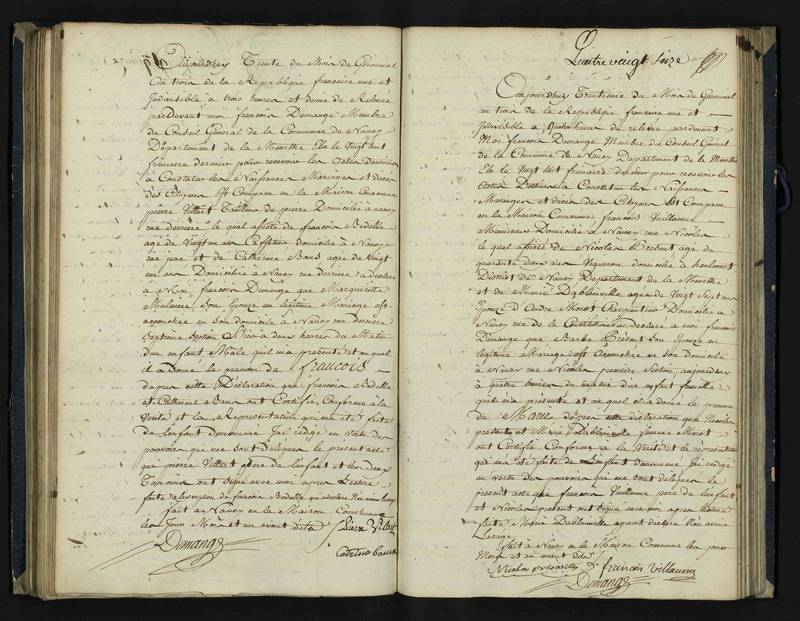 aujourdhuy Trente du Mois de Germinal
an trois de la Republique francaise une et
Indivisible a trois heures et demie de Relevee
pardevant moi francois Demange Membre
du Conseil General de la Commune de Nancy
Departement de la Meurthe Elu le Vingt huit
frimaire dernier pour recevoir les actes destinés
a Constater les Naissances Mariages et deces
des Citoyens Est Comparu en la Maison Commune
pierre Villet Tailleur de pierre Domicilié a nancy
rue derniere le quel assisté de francois Bedelle
age de Vingt un ans domicilié a Nancy
rue et de Catherine Baus agée de Vingt
un ans Domiciliée a Nancy rue derniere a declaré
a Moi francois Demange que Marguerite
son Epouse en legitime Mariage est
accouchée en son domicile a Nancy rue derniere
Septieme Section a deux heures du Matin
dun enfant Male quil ma presenté et au quel
il a donné le prenom de francois
dapres cette Declaration que francois Bedelle
et Catherine Baus ont Certifié Conforme a la
Verité et la Representation qui ma eté faite
de lenfant denommé Jai redigé en vertu des
pouvoirs qui me sont délégués le present acte
que pierre Villet pere de lenfant et les deux
Temoins ont signé avec moi apres Lecture
faite a lexception de francois Bedelle qui a declaré
fait a Nancy en la Maison Commune
les Jour Mois et an avant dits
Pierre Villet
Demange
Catherine baus
Quatre vingt Seize
Aujourdhuy Trentieme du Mois de Germinal
an trois de la Republique francaise une et
Indivisible a quatre heures de relevee pardevant
Moi francois Demange Membre du Conseil General
de la Commune de Nancy Departement de la Meurthe
Elu le Vingt huit frimaire dernier pour recevoir les
actes Destinés a Constater les Naissances
Mariages et deces des Citoyens Est Comparu
en la Maison Commune francois Vuillaume
Domicilié a Nancy rue Nicolas
le quel assisté de Nicolas age de
quarante deux ans Vigneron domicilié a
District de Nancy Departement de la Meurthe
et de Marie Dablainville agée de Vingt Sept ans
Epouse d'Andre Morot Charpentier Domicilié a
Nancy rue de la Constitution a declaré a moi francois
Demange que Barbe son Epouse en
legitime Mariage est accouchée en son domicile
a Nancy rue Nicolas premiere Section aujourdhuy
a quatre heures du matin dun enfant femelle
quil ma presenté et au quel il a donné le prenom
de Marie dapres cette declaration que Nicolas
et Marie Dablainville femme Morot
ont Certifié Conforme a la Verité et la representation
qui ma eté faite de Lenfant denommé Jai redigé
en vertu des pouvoirs qui me sont delegués le
present acte que francois Vuillaume pere de lenfant
et Nicolas ont signé avec moi apres lecture
faite Marie Dablainville ayant declaré
fait a Nancy en la Maison Commune les jour
Mois et an avant dits
Nicolas francois Villaume
Demange